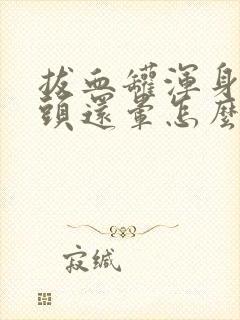 拔血罐渾身
頭還暈怎麼
寂緘